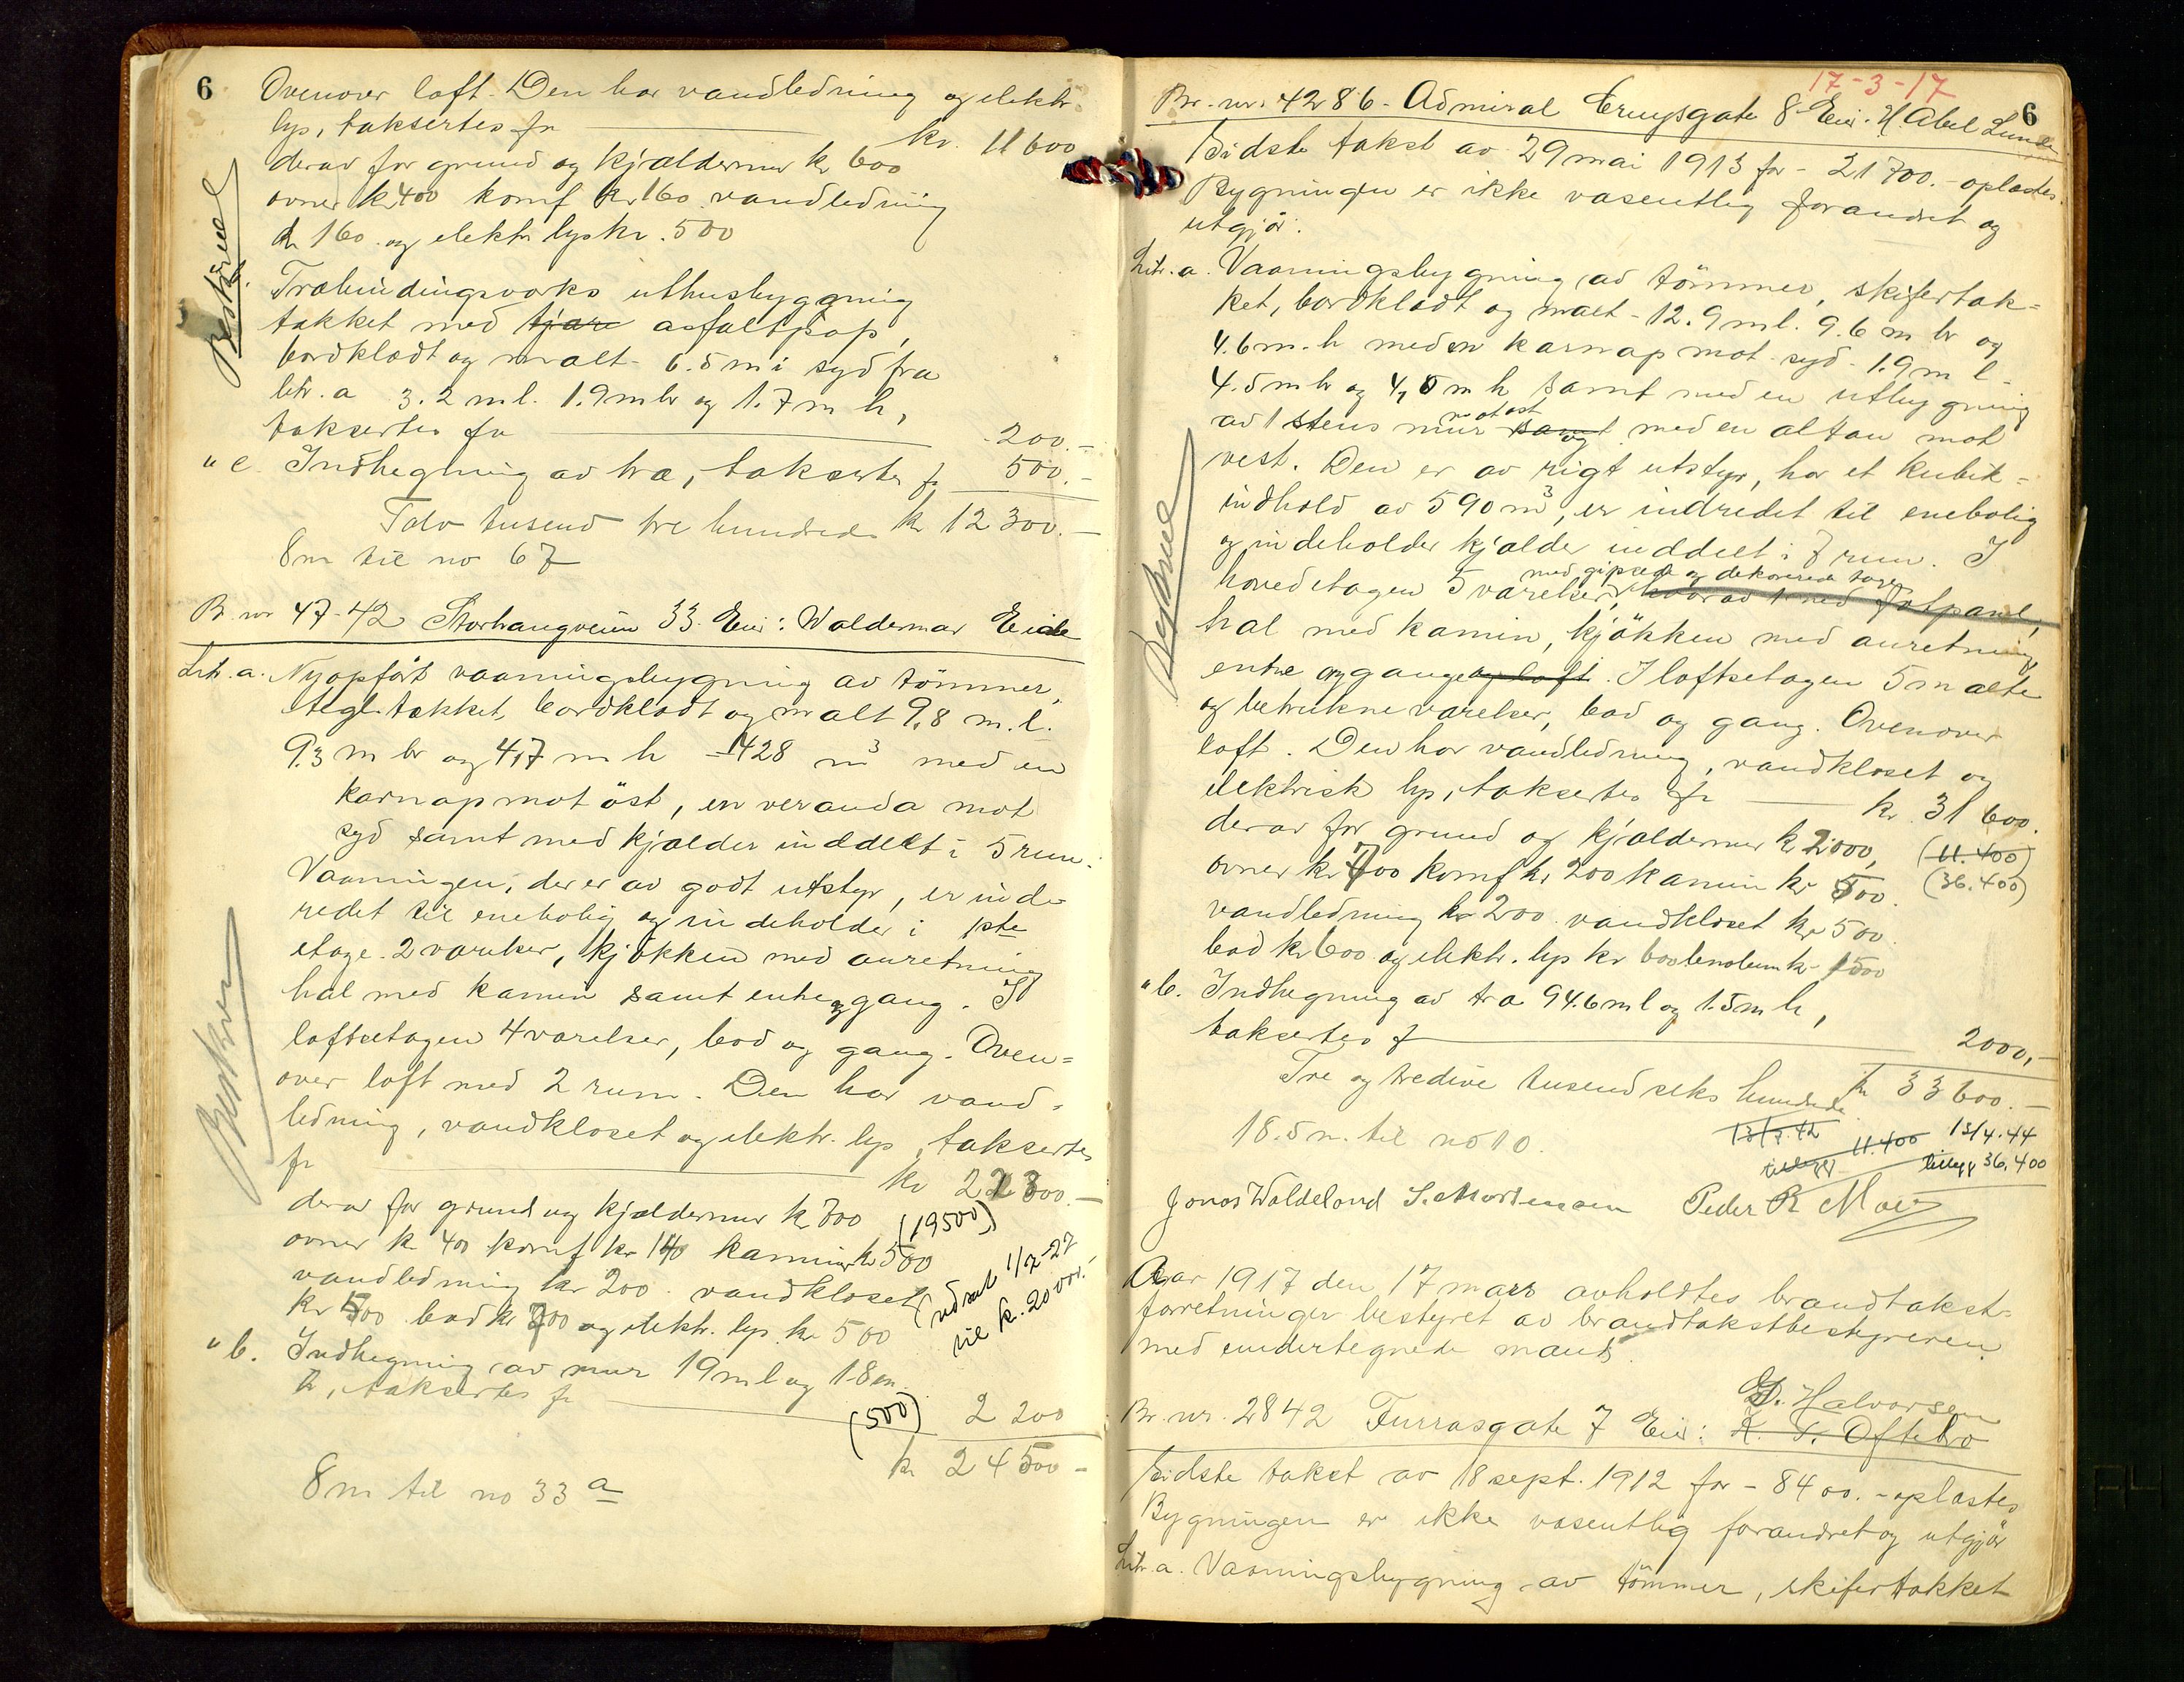 6
Ovenover loft. Den har vandledning og elektr.
lys, taksertes fr kr. 11600
derav for grund og kjældermur kr 600
ovner kr 400 komf kr 160 vandledning
kr 160 og elektr lys kr. 500
Beskrevet
Træbindingsverks uthusbygning
takket med tjære asfaltpap,
bordklædt og malt - 6.5 m i syd fra
litr. a 3.2 m l. 1.9 m br og 1.7 m h,
taksertes fr 200.-
" c. Indhegning av træ, taksertes fr 500.-
Tolv tusend tre hundrede kr 12300.-
8 m til no 67
B. nr 47-42 Storhaugveien 33 Eier: Waldemar Eide
Litr. a. Nyopført vaaningsbygning av tømmer,
tegltakket, bordklædt og malt 9,8 m. l.
9.3 m br og 4,7 m h - 428 m3 med en
karnap mot öst, en veranda mot
syd samt med kjælder inddelt i 5 rum.
Vaaningen, der er av godt utstyr, er inde-
redet til enebolig og indeholder i 1ste
etage 2 værelser, kjøkken med anretning
hal med kamin samt entre og gang. I
loftsetagen 4 værelser, bad og gang. Oven-
over loft med 2 rum. Den har vand-
ledning, vandkloset og elektr. lys, taksertes
fr kr 22300.-
derav for grund og kjældermur kr 800 (19500)
ovner kr 400 komf kr 140 kamin kr 500
vandledning kr 200. vandkloset
kr 500 bad kr 700 og elektr. lys kr 500
(nedsat 1/7-27
til k. 20000.-
" b. Indhegning av mur 19 m l og 1.8 m
h, taksertes fr (500) 2200
kr 24500-
8 m til no 33 a
17-3-17
6
Br. nr. 4286 - Admiral Cruysgate 8 Eier: H. Abel Lunde
Sidste takst av 29 mai 1913 for - 21700.- oplæstes.
Bygningen er ikke væsentlig forandret og
utgjør:
Litr. a. Vaaningsbygning av tømmer, skifertak-
ket, bordklædt og malt - 12.9 m l. 9.6 m br og
4.6 m. h med en karnap mot syd - 1.9 m l -
4.5 m br og 4,5 m h samt med en utbygning
av 1 stens mur mot øst samt og med en altan mot
vest. Den er av rigt utstyr, har et kubik-
indhold av 590 m3, er indredet til enebolig
og indeholder kjælder inddelt i 7 rum. I
hovedetagen 5 værelser, med gipsede og dekorerede tage hvorav 1 med fotpanel,
hal med kamin, kjøkken med anretning
entre og gang og loft. I loftsetagen 5 malte
og betrukne værelser, bad og gang. Ovenover
loft. Den har vandledning, vandkloset og
elektrisk lys, taksertes fr kr. 31600.
derav for grund og kjældermur kr 2000, (11.400)
ovner kr 700 komf kr 200 kamin kr 500. (36.400)
vandledning kr 200 vandkloset kr 500.
bad kr 600 og elektr. lys kr 600 linoleum kr 1500
" b. Indhegning av træ 94.6 m l og 1.5 m h,
taksertes fr 2000,-
Tre og tredive tusend seks hundrede kr 33600.-
18.5 m. til no 10.
13/3.42 tillegg 11.400 13/4.44
tillegg 36.400
Jonas Waldeland S. Mortensen Peder R Moe
Aar 1917 den 17 mars avholdtes brandtakst-
forretninger bestyret av brandtakstbestyreren
med undertegnede mænd.
Br. nr. 2842 Furrasgate 7 Eier: K. T. Oftebro
D. Halvorsen
Sidste takst av 18 sept. 1912 for - 8400. - oplæstes
Bygningen er ikke væsentlig forandret og utgjør
Litr. a. Vaaningsbygning av tømmer, skifertakket